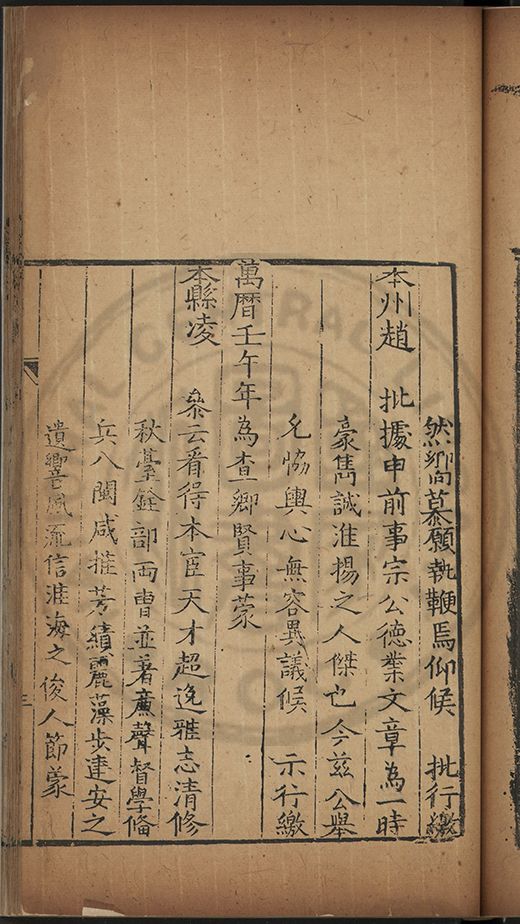 然嚮慕願執鞭焉仰候 批行繳
本州趙 批據申前事宗公德業文章為一時
豪雋誠淮揚之人傑也今茲公舉
允恊輿心無容異議候 示行繳
萬曆壬午年為查鄉賢事蒙
本縣凌 叅云看得本宦天才超逸雅志清修
秋臺銓部兩曹並著亷聲督學偹
兵八閩咸推芳績麗藻步建安之
遺響風流信淮海之俊人節蒙
三